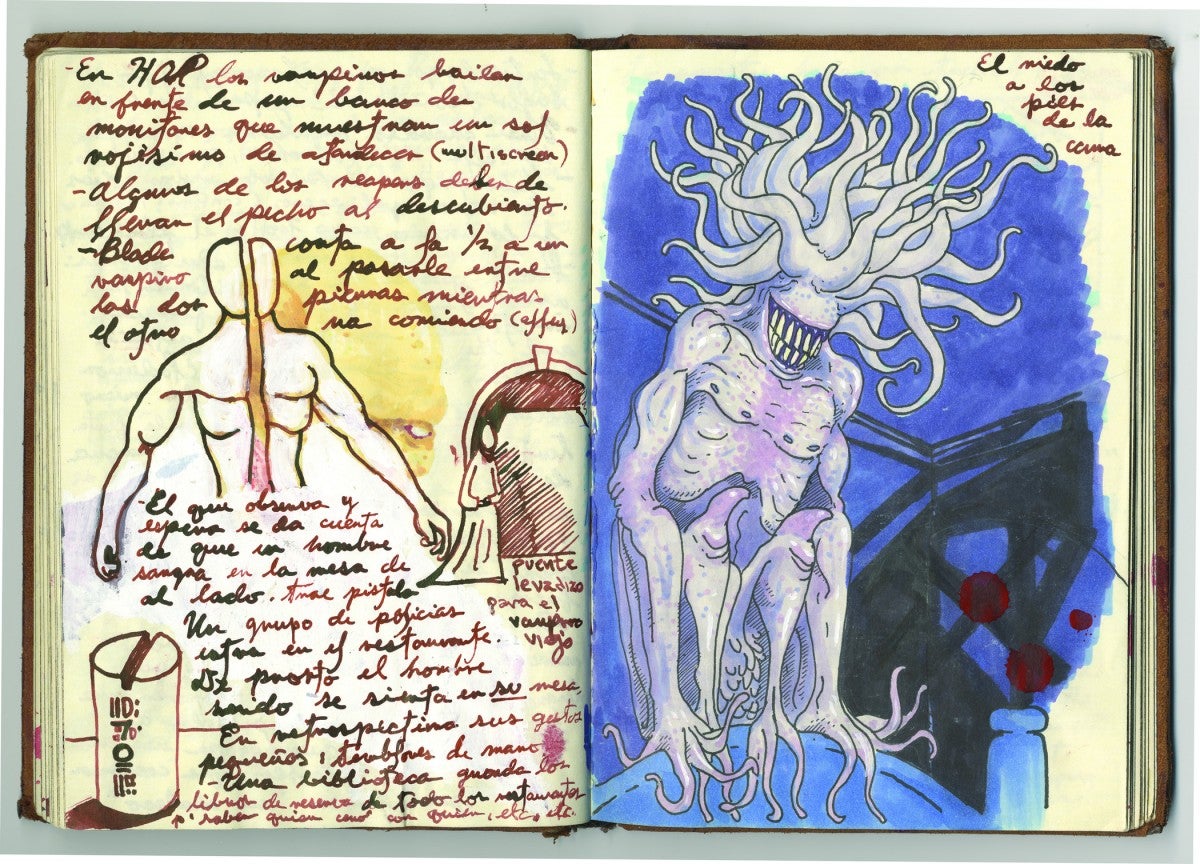 -En HOP los vampiros bailan
en frente de un banco de
monitores que muestran un sol
rojísimo de atardecer (multiscreen)
-Algunos de los reapers deben de
llevan el pecho al descubierto.
-Blade corta a la 1/2 a un
vampiro al pasarle entre
las dos piernas mientras
el otro va corriendo (effey)
-El que observa y
espera se da cuenta
de que un hombre
sangra en la mesa de
al lado. trae pistola
Un grupo de policias
entra en el restaurante.
De pronto el hombre
herido se sienta en su mesa.
En retrospectiva sus gestos
pequeños, temblores de mano
-Una biblioteca guarda los
libros de reserva de todos los restaurantes
p' saber quien cenó con quién, etc, etc.
puente
levadizo
para el
vampiro
viejo
El miedo
a los
pies
de la
cama